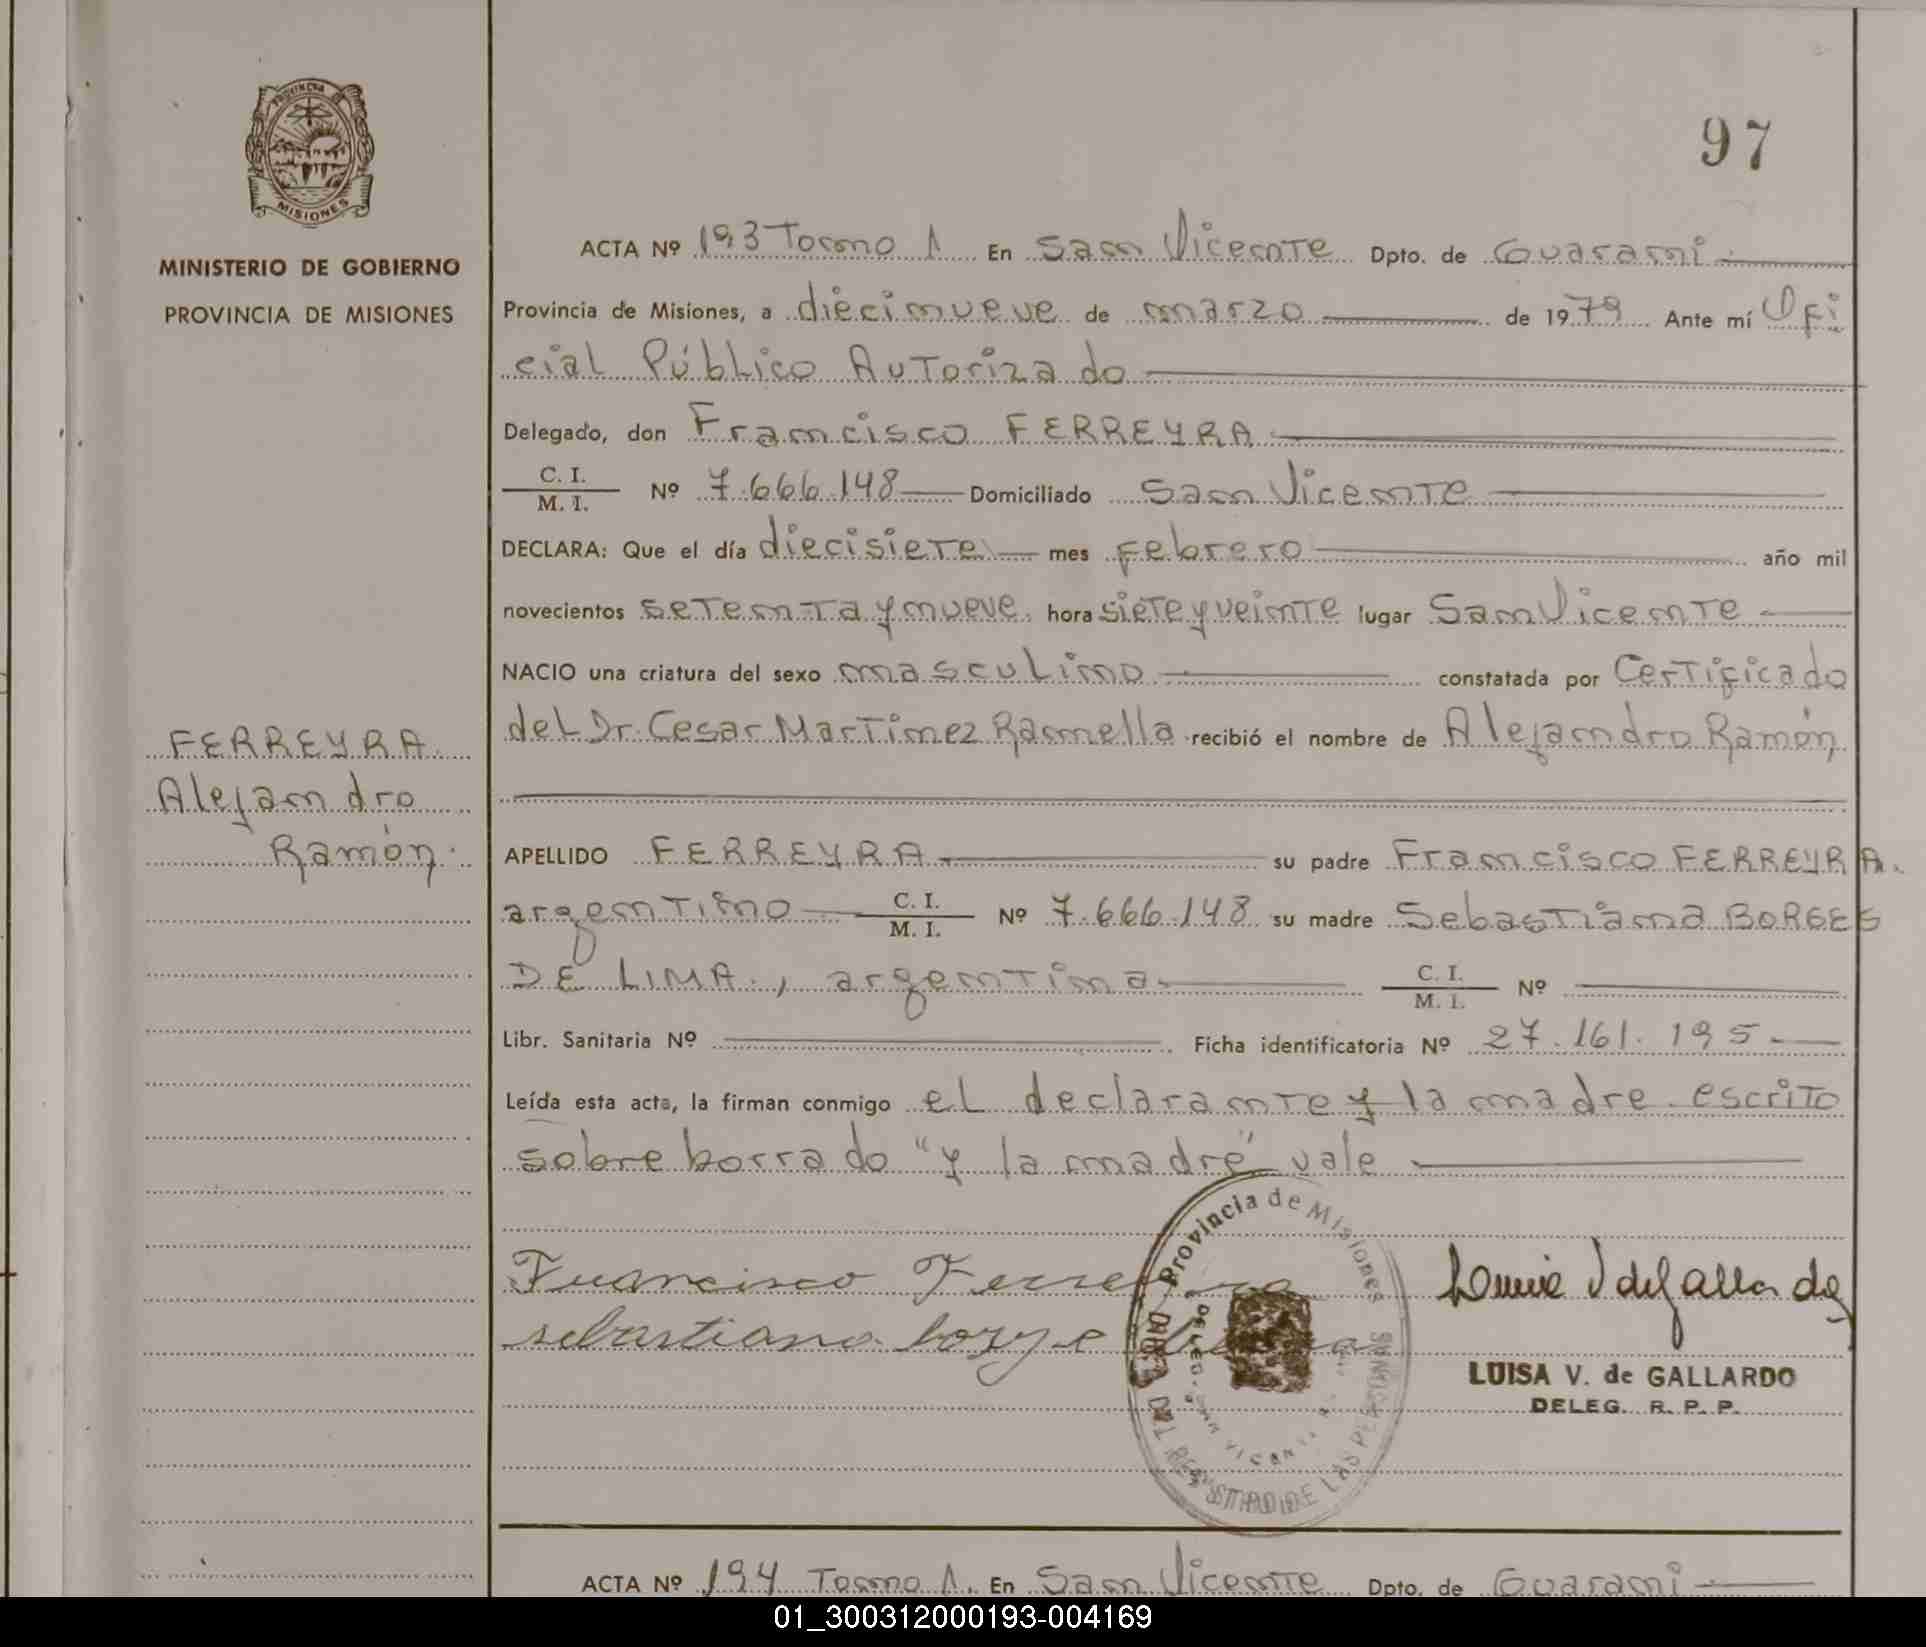 PROVINCIA DE
MISIONES
MINISTERIO DE GOBIERNO
PROVINCIA DE MISIONES
97
ACTA Nº 193 Tomo 1 En San Vicente Dpto. de Guarani
Provincia de Misiones, a diecinueve de marzo de 1979 Ante mí Ofi
cial Público Autorizado
Delegado, don Francisco FERREYRA
C. I.
M. I. Nº 7.666.148 Domiciliado San Vicente
DECLARA: Que el día diecisiete mes febrero año mil
novecientos setenta y nueve hora siete y veinte lugar San Vicente
NACIO una criatura del sexo masculino constatada por Certificado
del Dr. Cesar Martinez Ramella recibió el nombre de Alejandro Ramón
FERREYRA
Alejandro
Ramón.
APELLIDO FERREYRA su padre Francisco FERREYRA.
argentino C. I.
M. I. Nº 7.666.148 su madre Sebastiana BORGES
DE LIMA., argentina C. I.
M. I. Nº
Libr. Sanitaria Nº Ficha identificatoria Nº 27.161.195.
Leída esta acta, la firman conmigo el declarante y la madre. escrito
sobre borrado "y la madre" vale
Francisco Ferreyra
sebastiana borge
Provincia de Misiones
DEL REGISTRO DE LAS PERSONAS
LUISA V. de GALLARDO
DELEG. R. P. P.
ACTA Nº 194 Tomo 1. En San Vicente Dpto. de Guarani
01_300312000193-004169